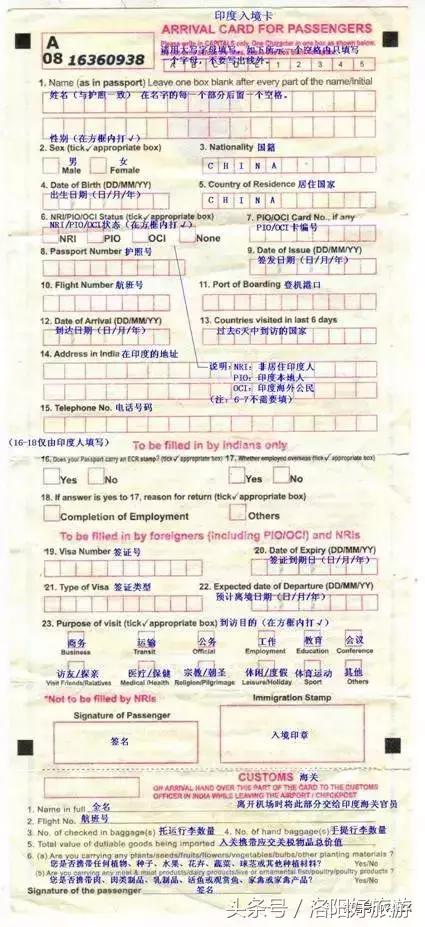 印度入境卡
A
08 16360938
ARRIVAL CARD FOR PASSENGERS
Please write in CAPITALS only. One Character in one box as shown below.
请用大写字母填写。如下所示一个空格内只填写
一个字母,不要写出线外。
1 2 3 4 5
1. Name (as in passport) Leave one box blank after every part of the name/Initial
姓名(与护照一致) 在名字的每一个部分后留一个空格。
性别(在方框内打√)
2. Sex (tick√ appropriate box) 3. Nationality 国籍
男 女 C H I N A
Male Female
4. Date of Birth (DD/MM/YY) 5. Country of Residence 居住国家
出生日期(日/月/年) C H I N A
6. NRI/PIO/OCI Status (tick√ appropriate box) 7. PIO/OCI Card No., if any
NRI/PIO/OCI状态(在方框内打√) PIO/OCI卡编号
NRI PIO OCI None
8. Passport Number 护照号 9. Date of Issue (DD/MM/YY)
签发日期(日/月/年)
10. Flight Number 航班号 11. Port of Boarding 登机港口
12. Date of Arrival (DD/MM/YY) 13. Countries visited in last 6 days
到达日期(日/月/年) 过去6天中到访的国家
14. Address in India 在印度的地址
说明:NRI: 非居住印度人
PIO: 印度本地人
OCI: 印度海外公民
(注: 6-7不需要填)
15. Telephone No. 电话号码
(16-18仅由印度人填写) To be filled in by Indians only
16. Does your Passport carry an ECR stamp? (tick√ appropriate box) 17. Whether employed overseas (tick√ appropriate box)
Yes No Yes No
18. If answer is yes to 17, reason for return (tick√ appropriate box)
Completion of Employment Others
To be filled in by foreigners (including PIO/OCI) and NRIs
19. Visa Number 签证号 20. Date of Expiry (DD/MM/YY)
签证到期日(日/月/年)
21. Type of Visa 签证类型 22. Expected date of Departure (DD/MM/YY)
预计离境日期(日/月/年)
23. Purpose of visit (tick√ appropriate box) 到访目的(在方框内打√)
商务 运输 公务 工作 教育 会议
Business Transit Official Employment Education Conference
访友/探亲 医疗/保健 宗教/朝圣 休闲/度假 体育运动 其他
Visit Friends/Relatives Medical/Health Religion/Pilgrimage Leisure/Holiday Sport Others
*Not to be filled by NRIs Immigration Stamp
Signature of Passenger
签名 入境印章
CUSTOMS 海关
OR ARRIVAL HAND OVER THIS PART OF THE CARD TO THE CUSTOMS
OFFICER IN INDIA WHILE LEAVING THE AIRPORT/CHECKPOST
离开机场时将此部分交给印度海关官员
1. Name in full 全名
2. Flight No. 航班号
3. No. of checked in baggage(s) 托运行李数量 4. No. of hand baggage(s) 手提行李数量
5. Total value of dutiable goods being imported 入关携带应交关税物品总价值
6. (a) Are you carrying any plants/seeds/fruits/flowers/vegetables/bulbs/other planting materials ?
您是否携带任何植物、种子、水果、花卉、蔬菜、球茎或其他种植材料? Yes/No
(b) Are you carrying any meat and meat products/dairy products/live or ornamental fish/poultry/poultry products ?
您是否携带肉、肉类制品、乳制品、活鱼或观赏鱼、家禽或家禽产品? Yes/No
Signature of the passenger 签名
头条号 / 洛阳好旅游